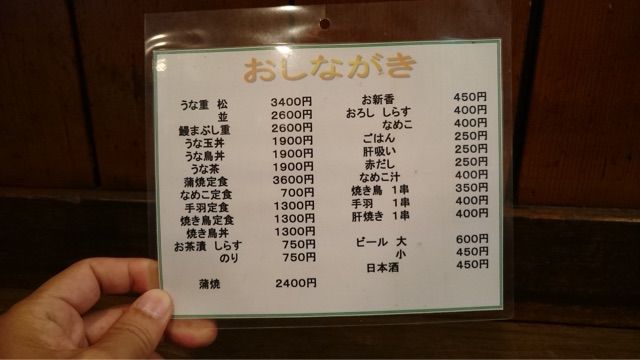 おしながき
うな重 松 3400円
並 2600円
鰻まぶし重 2600円
うな玉丼 1900円
うな鳥丼 1900円
うな茶 1900円
蒲焼定食 3600円
なめこ定食 700円
手羽定食 1300円
焼き鳥定食 1300円
焼き鳥丼 1300円
お茶漬 しらす 750円
のり 750円
蒲焼 2400円
お新香 450円
おろし しらす 400円
なめこ 400円
ごはん 250円
肝吸い 250円
赤だし 250円
なめこ汁 400円
焼き鳥 1串 350円
手羽 1串 400円
肝焼き 1串 400円
ビール 大 600円
小 450円
日本酒 450円